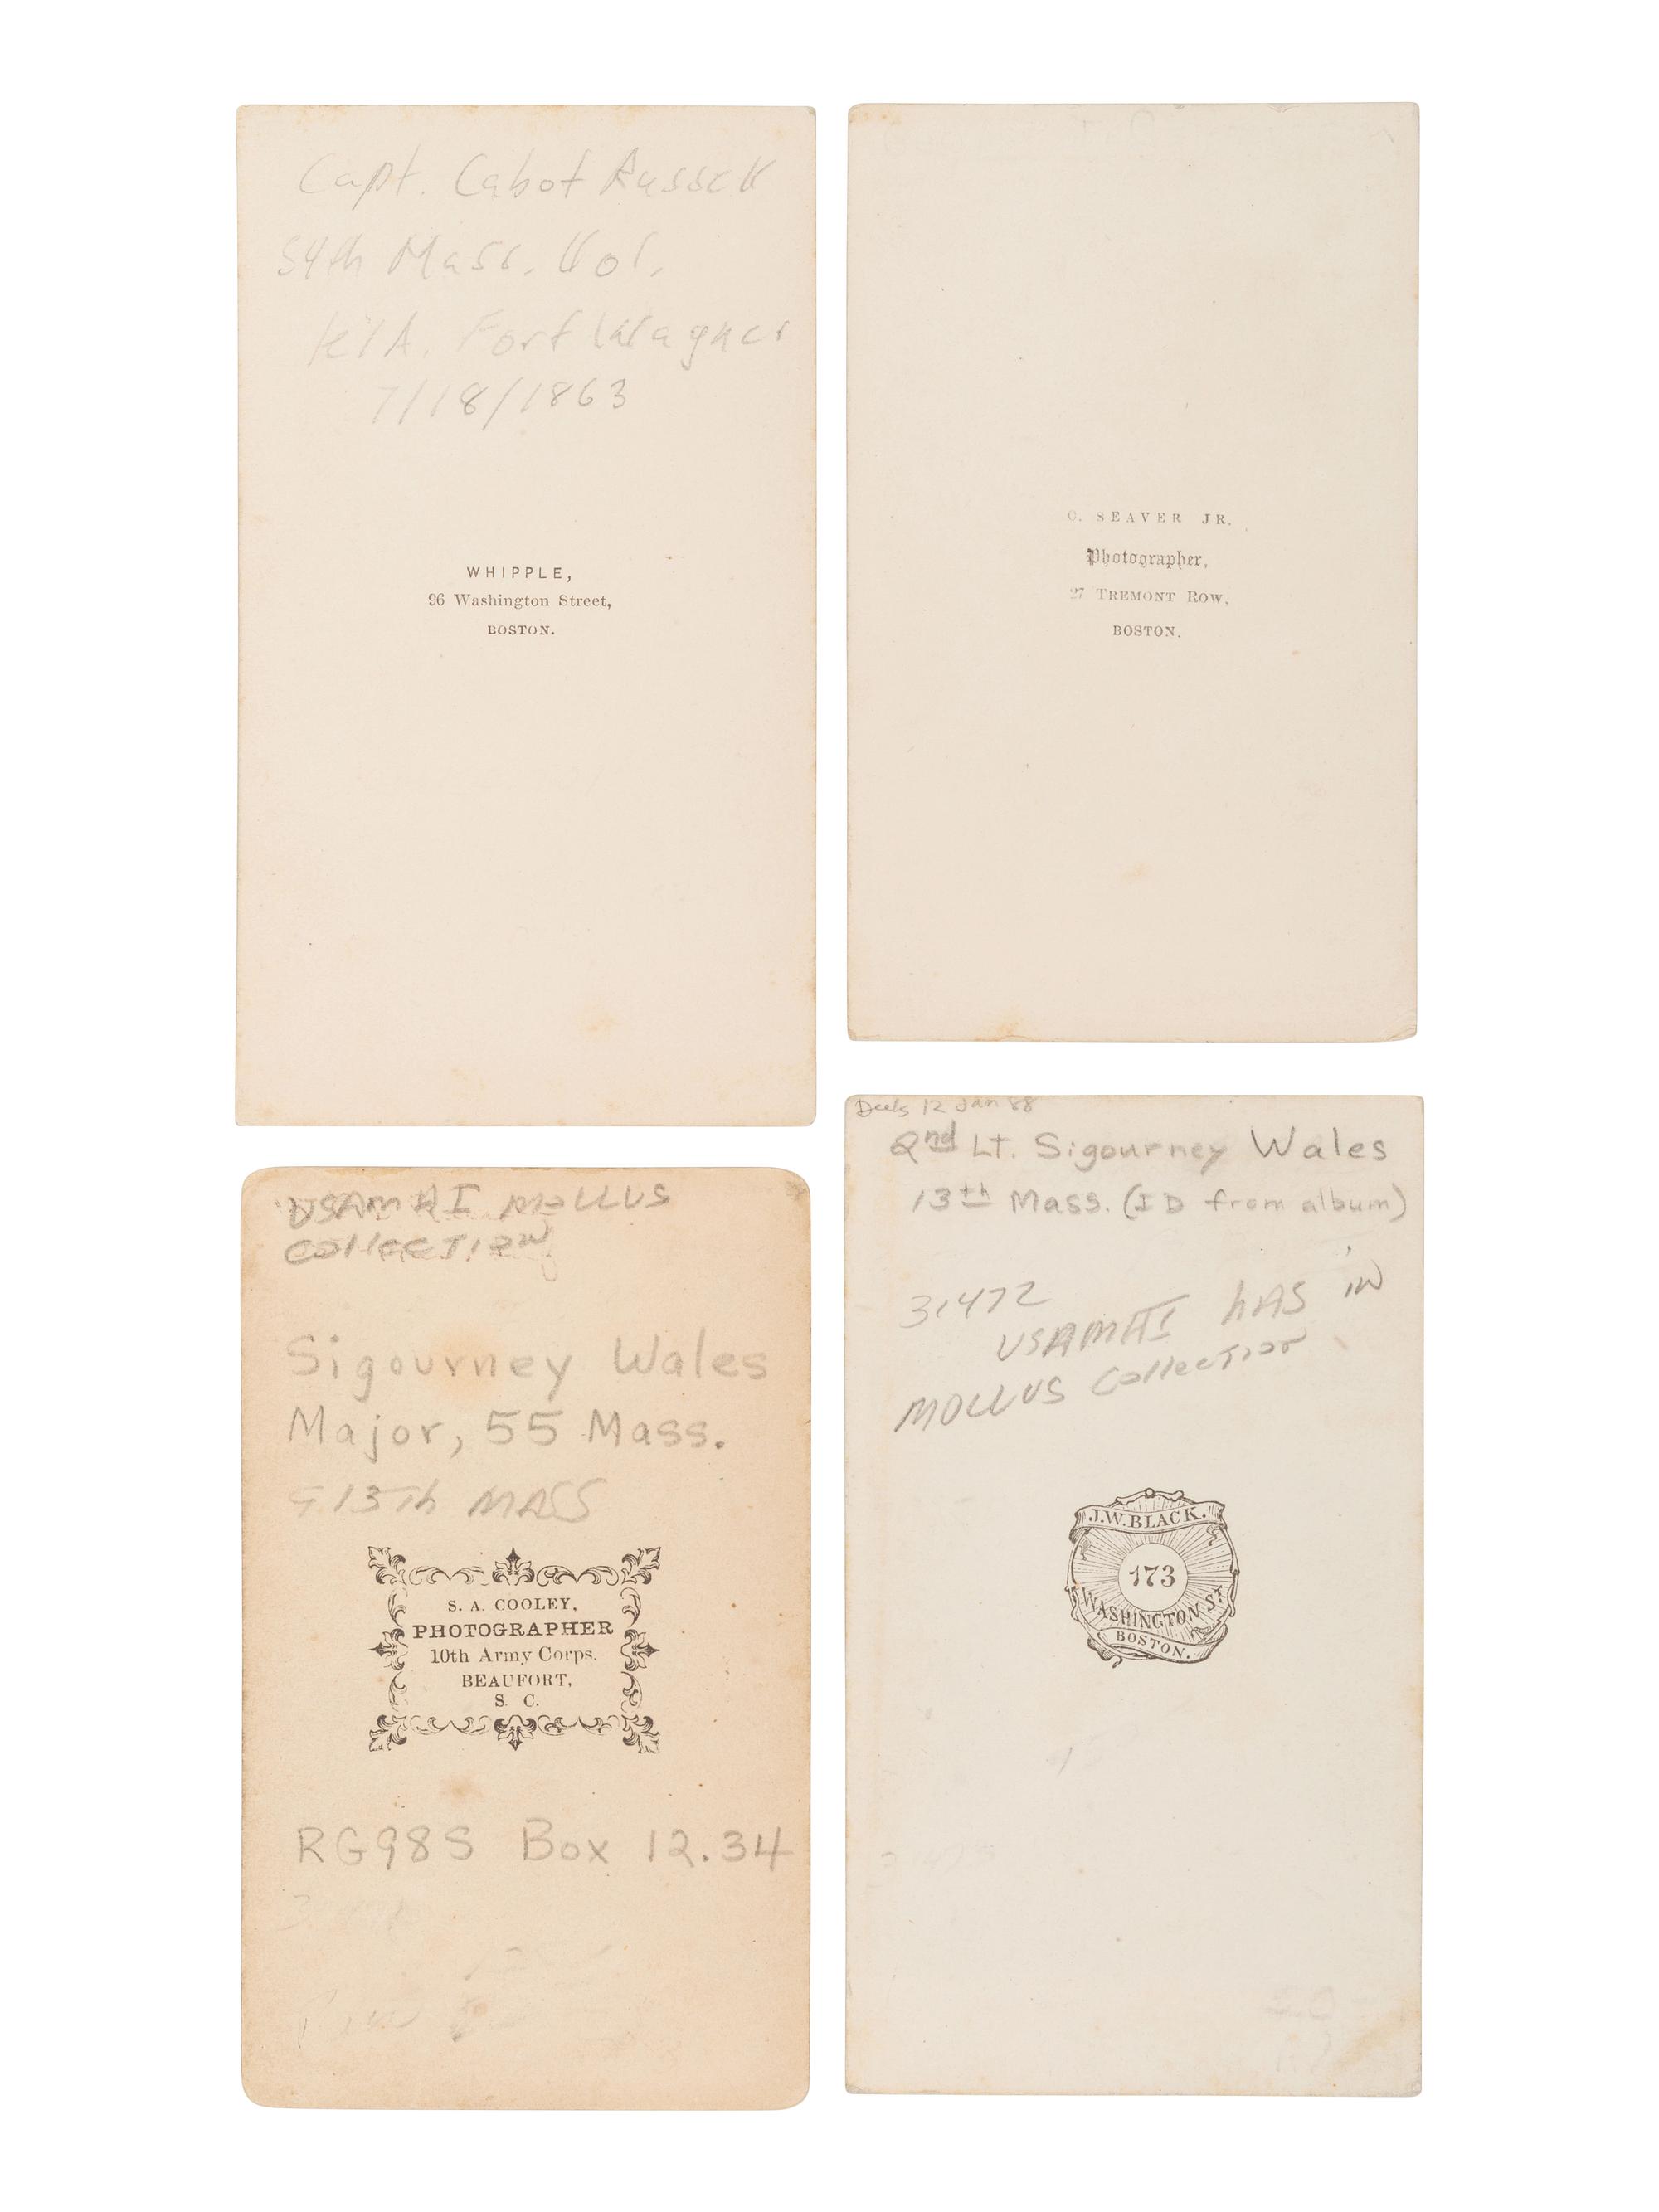 Capt. Cabot Russell
54th Mass. Vol.
KIA. Fort Wagner
7/18/1863
WHIPPLE,
96 Washington Street,
BOSTON.
C. SEAVER JR.
Photographer,
27 TREMONT ROW,
BOSTON.
USAMHI MOLLUS
COLLECTION
Sigourney Wales
Major, 55 Mass.
13Th MASS
S. A. COOLEY,
PHOTOGRAPHER
10th Army Corps.
BEAUFORT,
S. C.
RG98S Box 12.34
12 Jan 88
2nd Lt. Sigourney Wales
13th Mass. (ID from album)
31472
USAMHI hAS IN
MOLLUS CollecTion
J.W. BLACK.
173
WASHINGTON ST.
BOSTON.